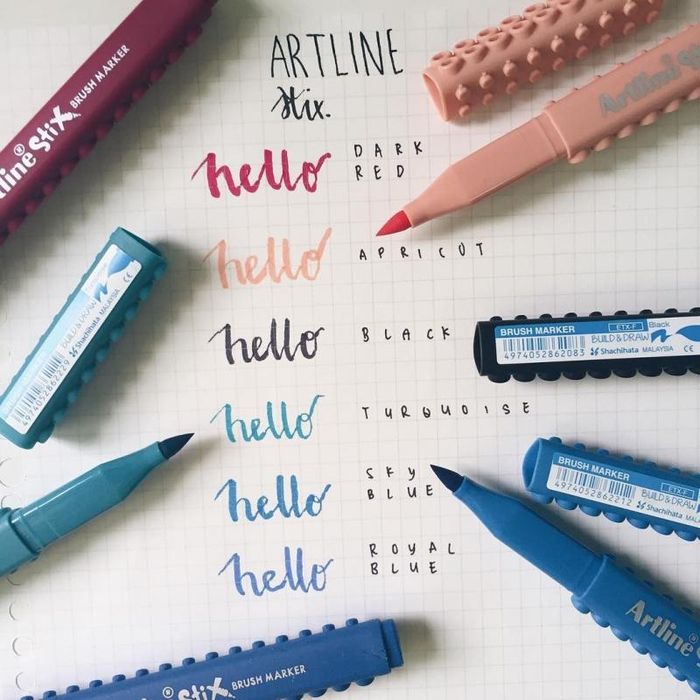 ARTLINE
stix.
hello
DARK
RED
hello
APRICOT
hello
BLACK
hello
TURQUOISE
hello
SKY
BLUE
hello
ROYAL
BLUE
Artline
stiX BRUSH MARKER
BUILD & DRAW
Shachihata MALAYSIA
4974052862229
BRUSH MARKER
ETX-F
Black
4974052862083
BUILD & DRAW
Shachihata MALAYSIA
BRUSH MARKER
ETX-F
4974052862212
BUILD & DRAW
Shachihata
Artline
stiX BRUSH MARKER